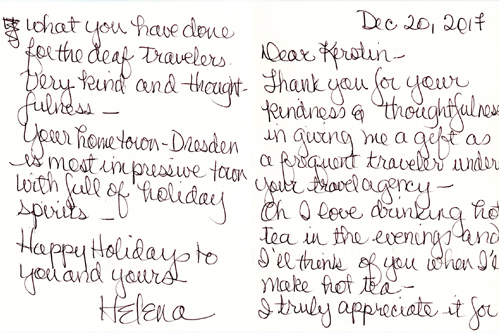 Dec 20, 2017
Dear Kerstin-
Thank you for your
kindness & thoughtfulness
in giving me a gift as
a frequent traveler under
your travel agency-
Oh I love drinking hot
tea in the evenings and
I'll think of you when I'll
make hot tea-
I truly appreciate it for
what you have done
for the deaf travelers.
Very kind and thought-
fulness-
Your hometown-Dresden
is most impressive town
with full of holiday
spirits-
Happy Holidays to
you and yours
Helena